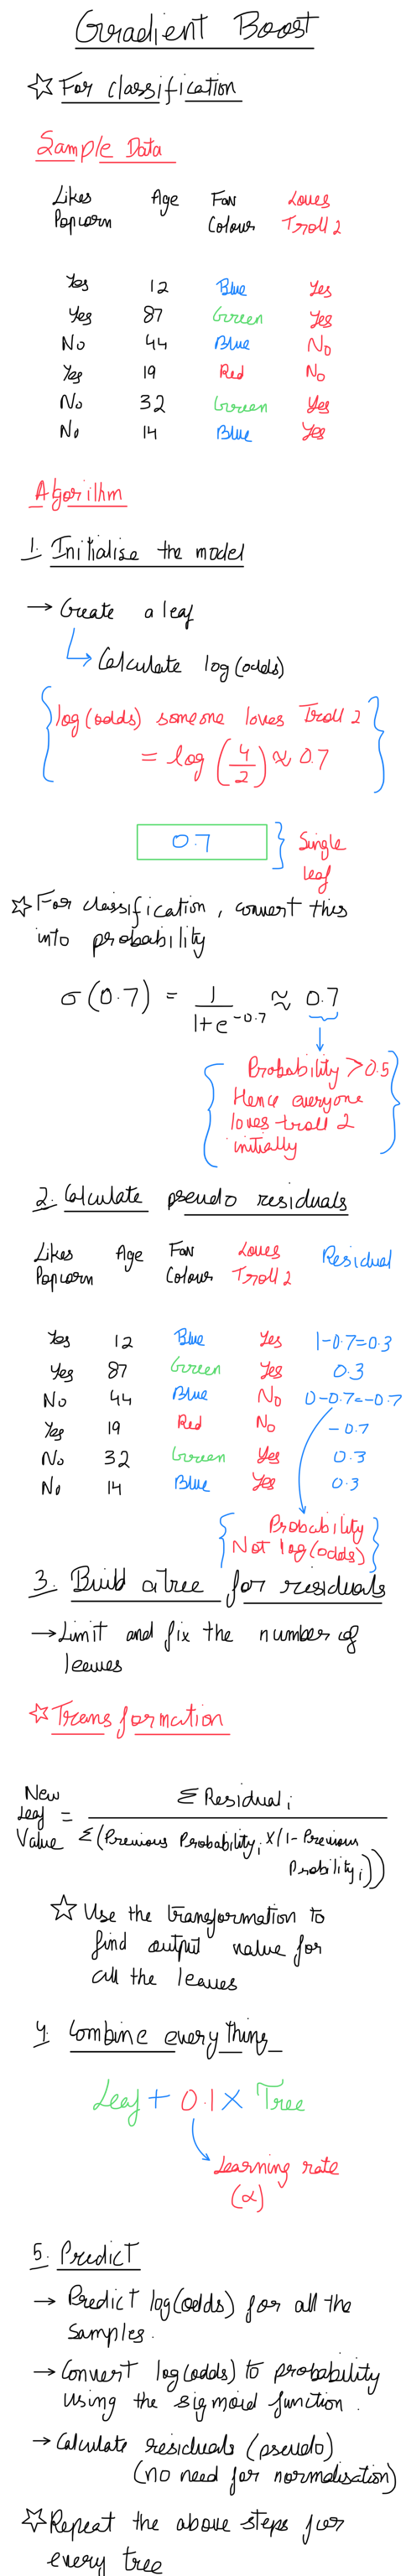 Gradient Boost
☆ For classification
Sample Data
Likes Popcorn Age Fav Colour Loves Troll 2
Yes 12 Blue Yes
Yes 87 Green Yes
No 44 Blue No
Yes 19 Red No
No 32 Green Yes
No 14 Blue Yes
Algorithm
1. Initialise the model
→ Create a leaf
↳ Calculate log(odds)
{log(odds) someone loves Troll 2
= log (4/2) ≈ 0.7}
0.7 } Single
leaf
☆ For classification, convert this
into probability
σ(0.7) = 1/(1+e^-0.7) ≈ 0.7
{Probability > 0.5
Hence everyone
loves troll 2
initially}
2. Calculate pseudo residuals
Likes Popcorn Age Fav Colour Loves Troll 2 Residual
Yes 12 Blue Yes 1-0.7=0.3
Yes 87 Green Yes 0.3
No 44 Blue No 0-0.7=-0.7
Yes 19 Red No -0.7
No 32 Green Yes 0.3
No 14 Blue Yes 0.3
{Probability
Not log(odds)}
3. Build a tree for residuals
→ Limit and fix the number of
leaves
☆ Transformation
New Leaf Value = Σ Residual i / Σ(Previous Probability i × (1- Previous Probility i))
☆ Use the transformation to
find output value for
all the leaves
4. Combine everything
Leaf + 0.1 × Tree
Learning rate
(α)
5. Predict
→ Predict log(odds) for all the
samples.
→ Convert log(odds) to probability
using the sigmoid function.
→ Calculate residuals (pseudo)
(no need for normalisation)
☆ Repeat the above steps for
every tree